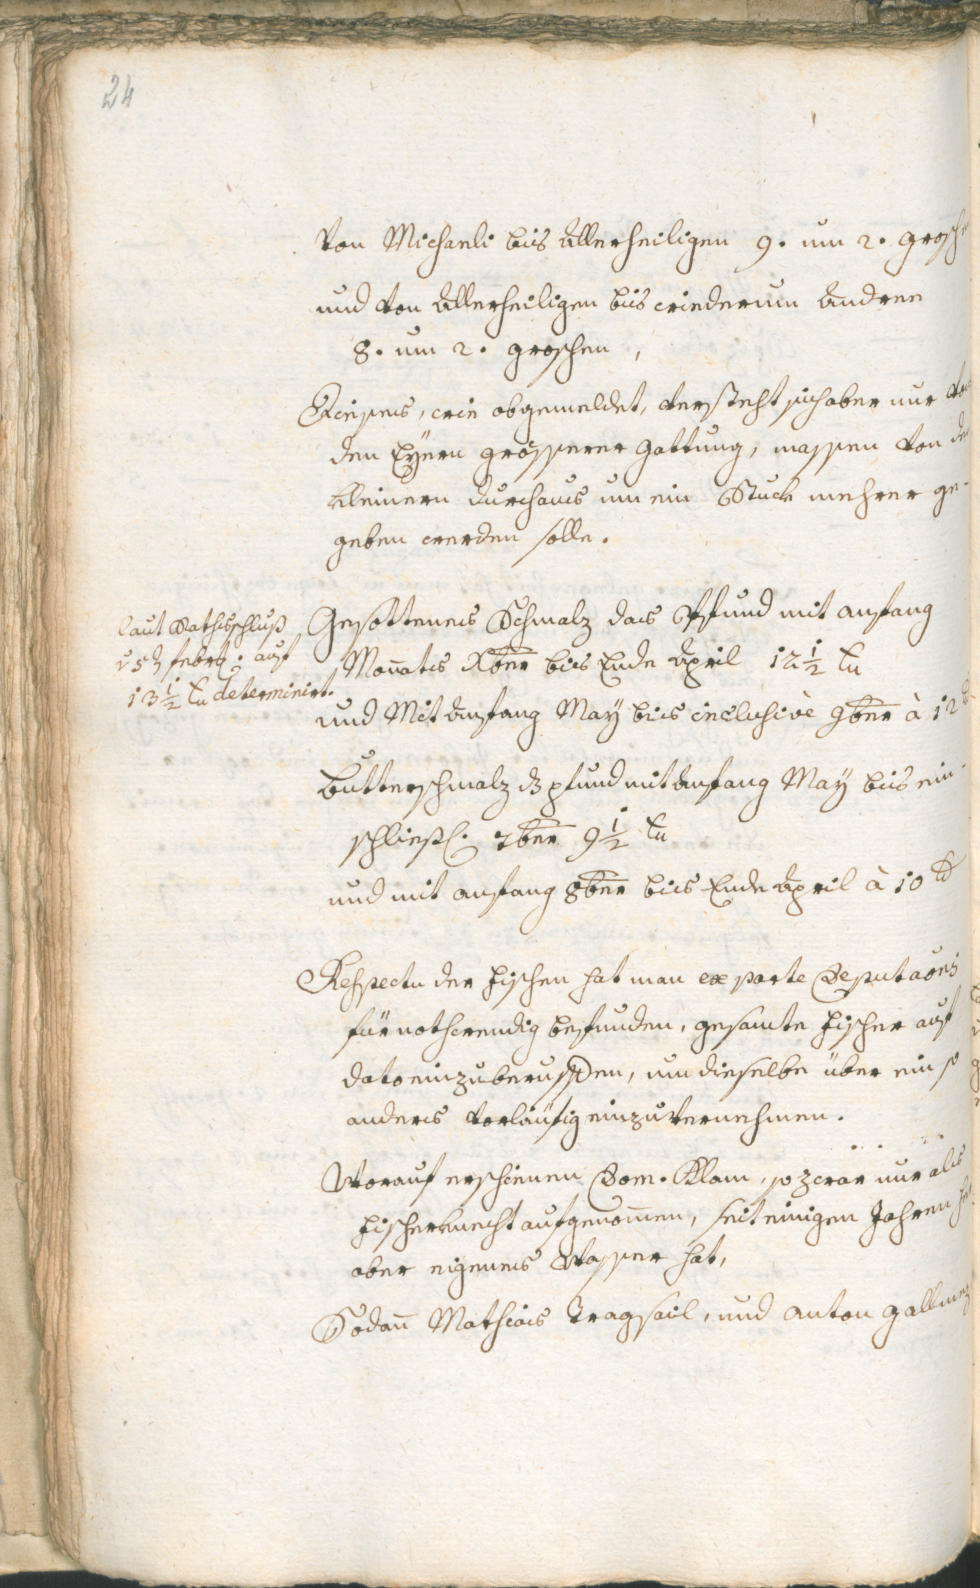 24
Von Michaeli bis Allerheiligen 9. um 2. grosch
und von Allerheiligen bis widerum Andree
8. um 2. groschen,
Dieses, wie obgemeldet, versteht sich aber nur von
den Eÿern grösserer gattung, massen von de
kleinern durchaus um ein Stuck mehrer ge-
geben werden solle.
laut Rathsschluß
25t febr: auf
13 1/2 xr determinirt.
Gesottenes Schmalz das Pfund mit anfang
Monatis Xber bis Ende April 12 1/2 xr
und Mit Anfang Maÿ bis inclusivè 9ber à 12
Butterschmalz dz pfund mit Anfang Maÿ bis ein-
schliessl. 7ber 9 1/2 xr
und mit anfang 8ber bis Ende April à 10 xr
Respectu der fischen hat man ex parte Deputaõnis
für nothwendig befunden, gesamte fischer auf
dato einzuberuffen, um dieselbe über ein so
anders vorläufig einzuvernehmen.
Worauf erschienen Dom. Klam, so zwar nur als
fischerknecht aufgenom̄en, seit einigen Jahren
aber eigenes Wasser hat,
Sodan̄ Mathias Tragseil, und Anton